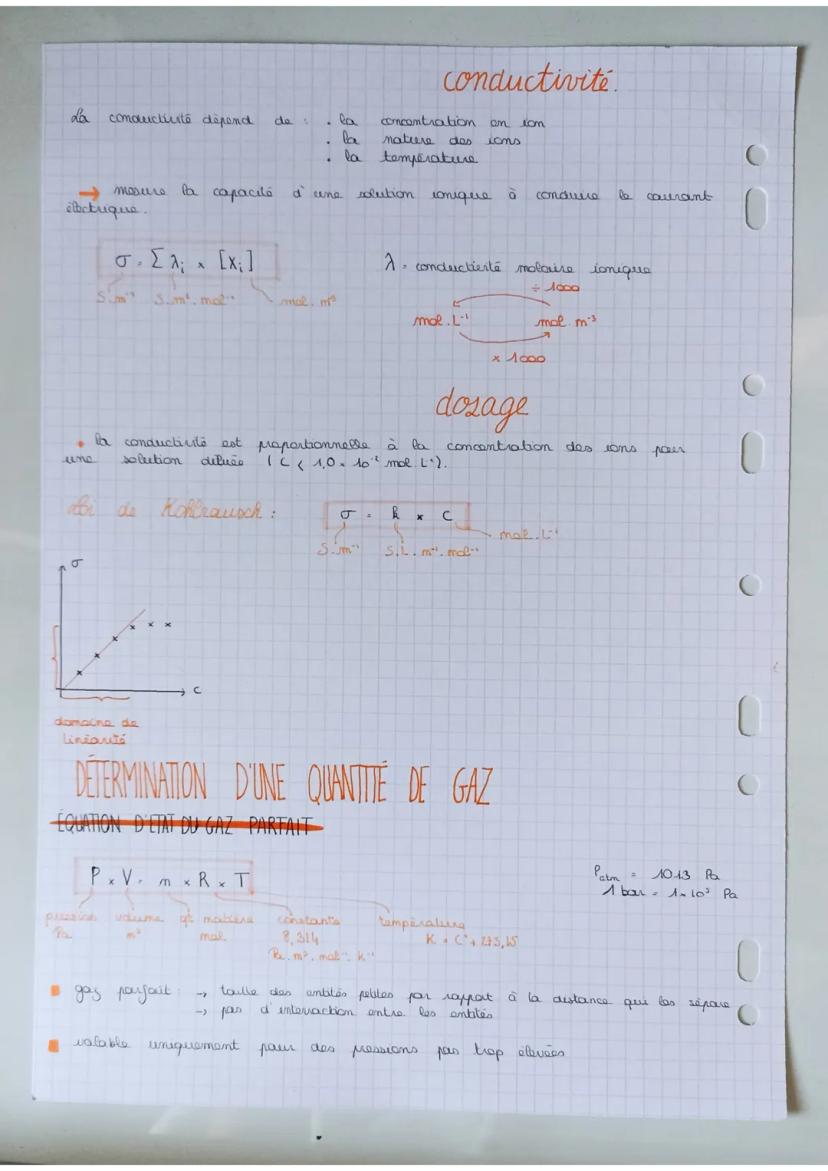 conductivité.
La conductivité dépend de : • la concentration en ion
• la nature des ions
• la température
→ mesure la capacité d'une solution ionique à conduire le courant
électrique.
σ = Σ λi × [Xi]
λ = conductivité molaire ionique
S.m⁻¹ S.m².mol⁻¹ mol.m³
÷ 1000
mol.L⁻¹ mol.m⁻³
× 1000
dosage
• la conductivité est proportionnelle à la concentration des ions pour
une solution diluée (C < 1,0 × 10⁻² mol.L⁻¹).
Loi de Kohlrausch : σ = k × C
S.m⁻¹ S.L.m⁻¹.mol⁻¹ mol.L⁻¹
σ
C
domaine de
linéarité
DÉTERMINATION D'UNE QUANTITÉ DE GAZ
ÉQUATION D'ÉTAT DU GAZ PARFAIT
P × V = n × R × T
Patm = 1013 Pa
1 bar = 1 × 10⁵ Pa
pression volume qt matière constante température
Pa m³ mol 8,314 K = C° + 273,15
Pa.m³.mol⁻¹.K⁻¹
gaz parfait : → taille des entités petites par rapport à la distance qui les sépare
→ pas d'interaction entre les entités
valable uniquement pour des pressions pas trop élevées